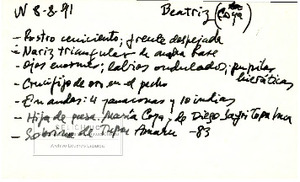 N 8-8-91 Beatriz (Coya)
- Rostro ceniciento; frente despejada
- Nariz triangular de ancha base
- Ojos enormes; labios ondulados; pupilas hieráticas
- Crucifijo de oro en el pecho
- En andas: 4 yanaconas y 10 indias
- Hija de María Coya, de Diego Sayri Topa Inca
- Sobrina de Tupac Amaru -83